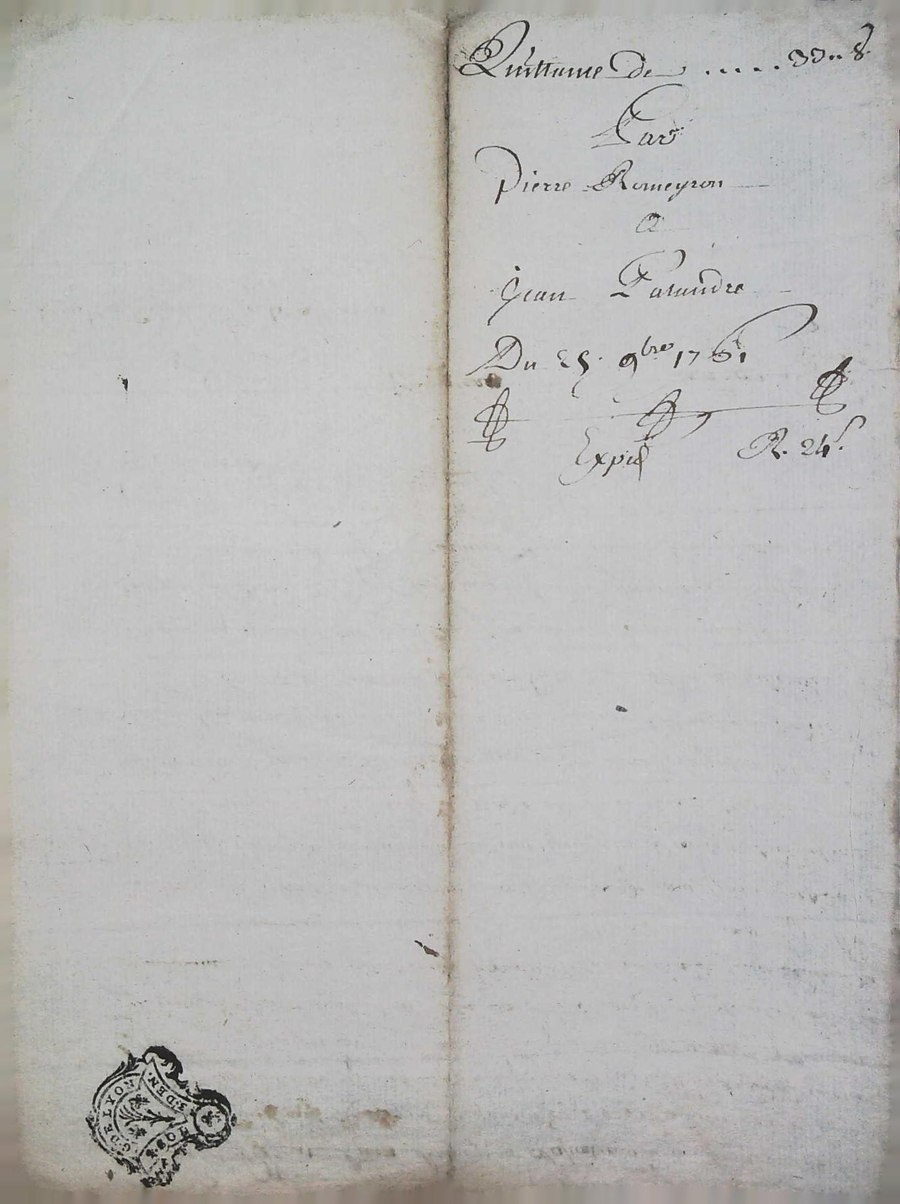 Quittance de ..... 33.. 8
Par
Pierre Romeyron
a
Jean Palandre
Du 25. 9bre 1761
Expié R. 24s
G DE LYON
DEN.